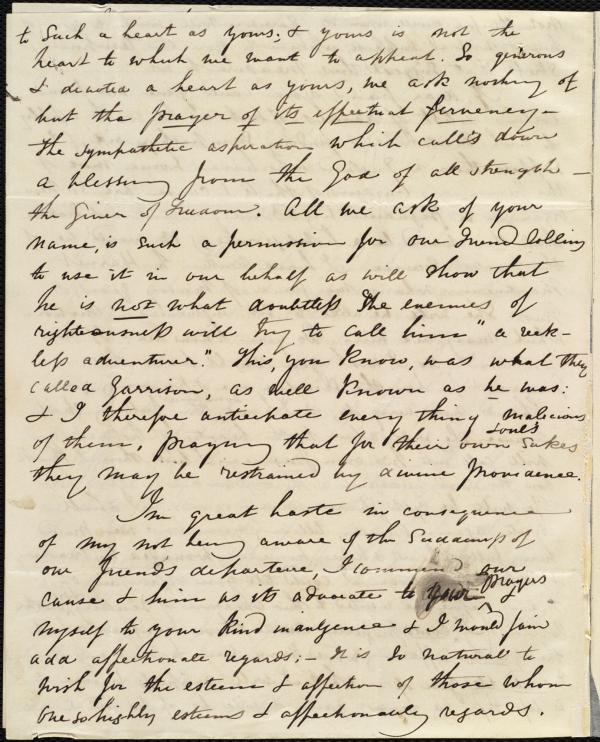 to such a heart as yours; & yours is not the
heart to which we want to appeal. So generous
& devoted a heart as yours, we ask nothing of
but the prayer of its effectual fervency -
the sympathetic aspiration which calls down
a blessing from the God of all strength -
the Giver of Freedom. All we ask of your
name, is such a permission for our Friend Collins
to use it in our behalf as will show that
he is not what doubtless the enemies of
righteousness will try to call him "a reck-
less adventurer." This, you know, was what they
called Garrison, as well known as he was:
& I therefore anticipate every thing malicious
of them, praying that for their own souls sakes
they may be restrained by divine Providence.
In great haste in consequence
of my not being aware of the suddenness of
our friend's departure, I commend our
cause & him as its advocate to your prayers &
myself to your kind indulgence & I would fain
add affectionate regards; - It is so natural to
wish for the esteem & affection of those whom
one so highly esteems & affectionately regards.